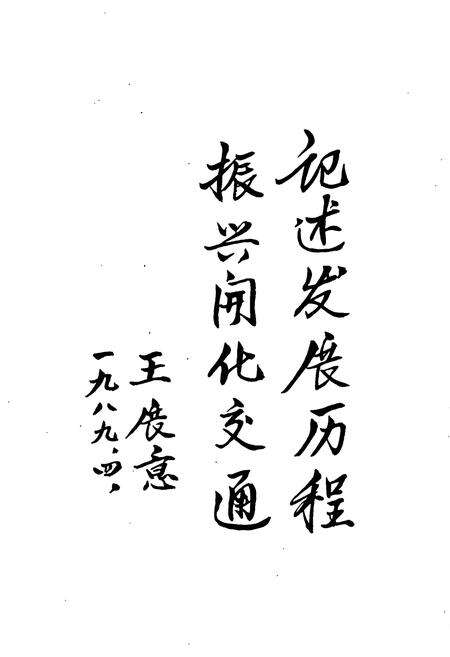 记述发展历程
振兴开化交通
王展意
一九八九.四.